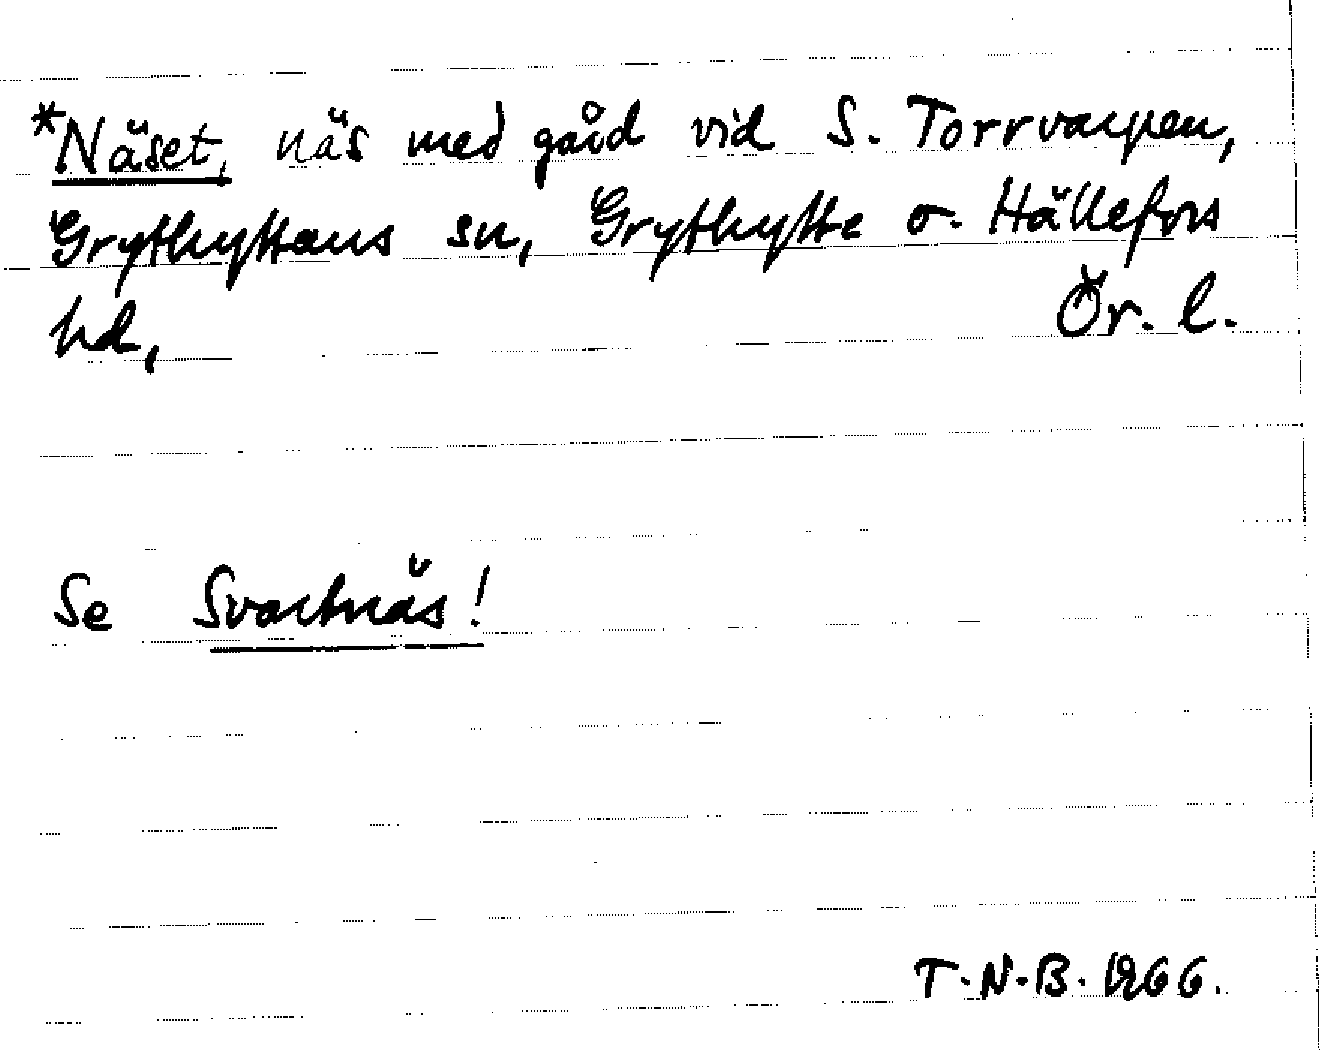 *Näset, näs med gård vid S. Torrvarpen,
Grythyttans sn, Grythytte o. Hällefors
hd, Ör. l.
Se Svartnäs!
T.N.B. 1966.